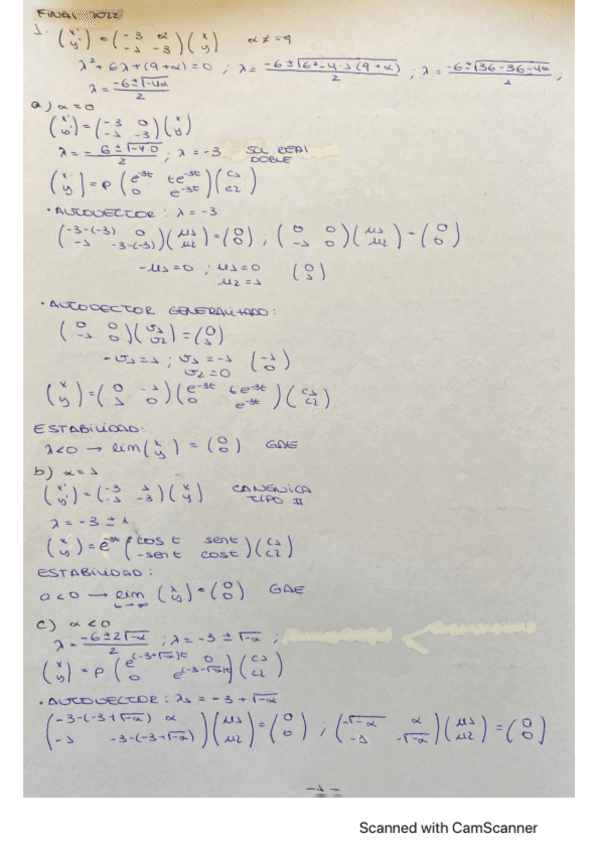 FINAL 2022
1. (x' y') = (-3 α -1 -3)(x y) α ≠ -9
λ²+6λ+(9+α)=0 ; λ = (-6±√(6²-4·1·(9+α)))/2 ; λ = (-6±√(36-36-4α))/2 ;
λ = (-6±√(-4α))/2
a) α=0
(x' y') = (-3 0 -1 -3)(x y)
λ = (-6±√(-4·0))/2 ; λ = -3 SOL REAL DOBLE
(x y) = P (e^-3t te^-3t 0 e^-3t)(C1 C2)
· AUTOVECTOR: λ = -3
(-3-(-3) 0 -1 -3-(-3))(μ1 μ2) = (0 0) ; (0 0 -1 0)(μ1 μ2) = (0 0)
-μ1=0 ; μ1=0 μ2=1 (0 1)
· AUTOVECTOR GENERALIZADO:
(0 0 -1 0)(v1 v2) = (0 1)
-v1=1 ; v1=-1 v2=0 (-1 0)
(x y) = (0 -1 1 0)(e^-3t te^-3t 0 e^-3t)(C1 C2)
ESTABILIDAD:
λ<0 → lim (x y) = (0 0) GAE
b) α=1
(x' y') = (-3 1 -1 -3)(x y) CANÓNICA TIPO II
λ = -3 ± i
(x y) = e^-3t (cos t sen t -sen t cos t)(C1 C2)
ESTABILIDAD:
a<0 → lim t→∞ (x y) = (0 0) GAE
c) α<0
λ = (-6±2√-α)/2 ; λ = -3 ± √-α ;
(x y) = P (e^(-3+√-α)t 0 0 e^(-3-√-α)t)(C1 C2)
· AUTOVECTOR: λ1 = -3+√-α
(-3-(-3+√-α) α -1 -3-(-3+√-α))(μ1 μ2) = (0 0) ; (-√-α α -1 -√-α)(μ1 μ2) = (0 0)
-1-
Scanned with CamScanner